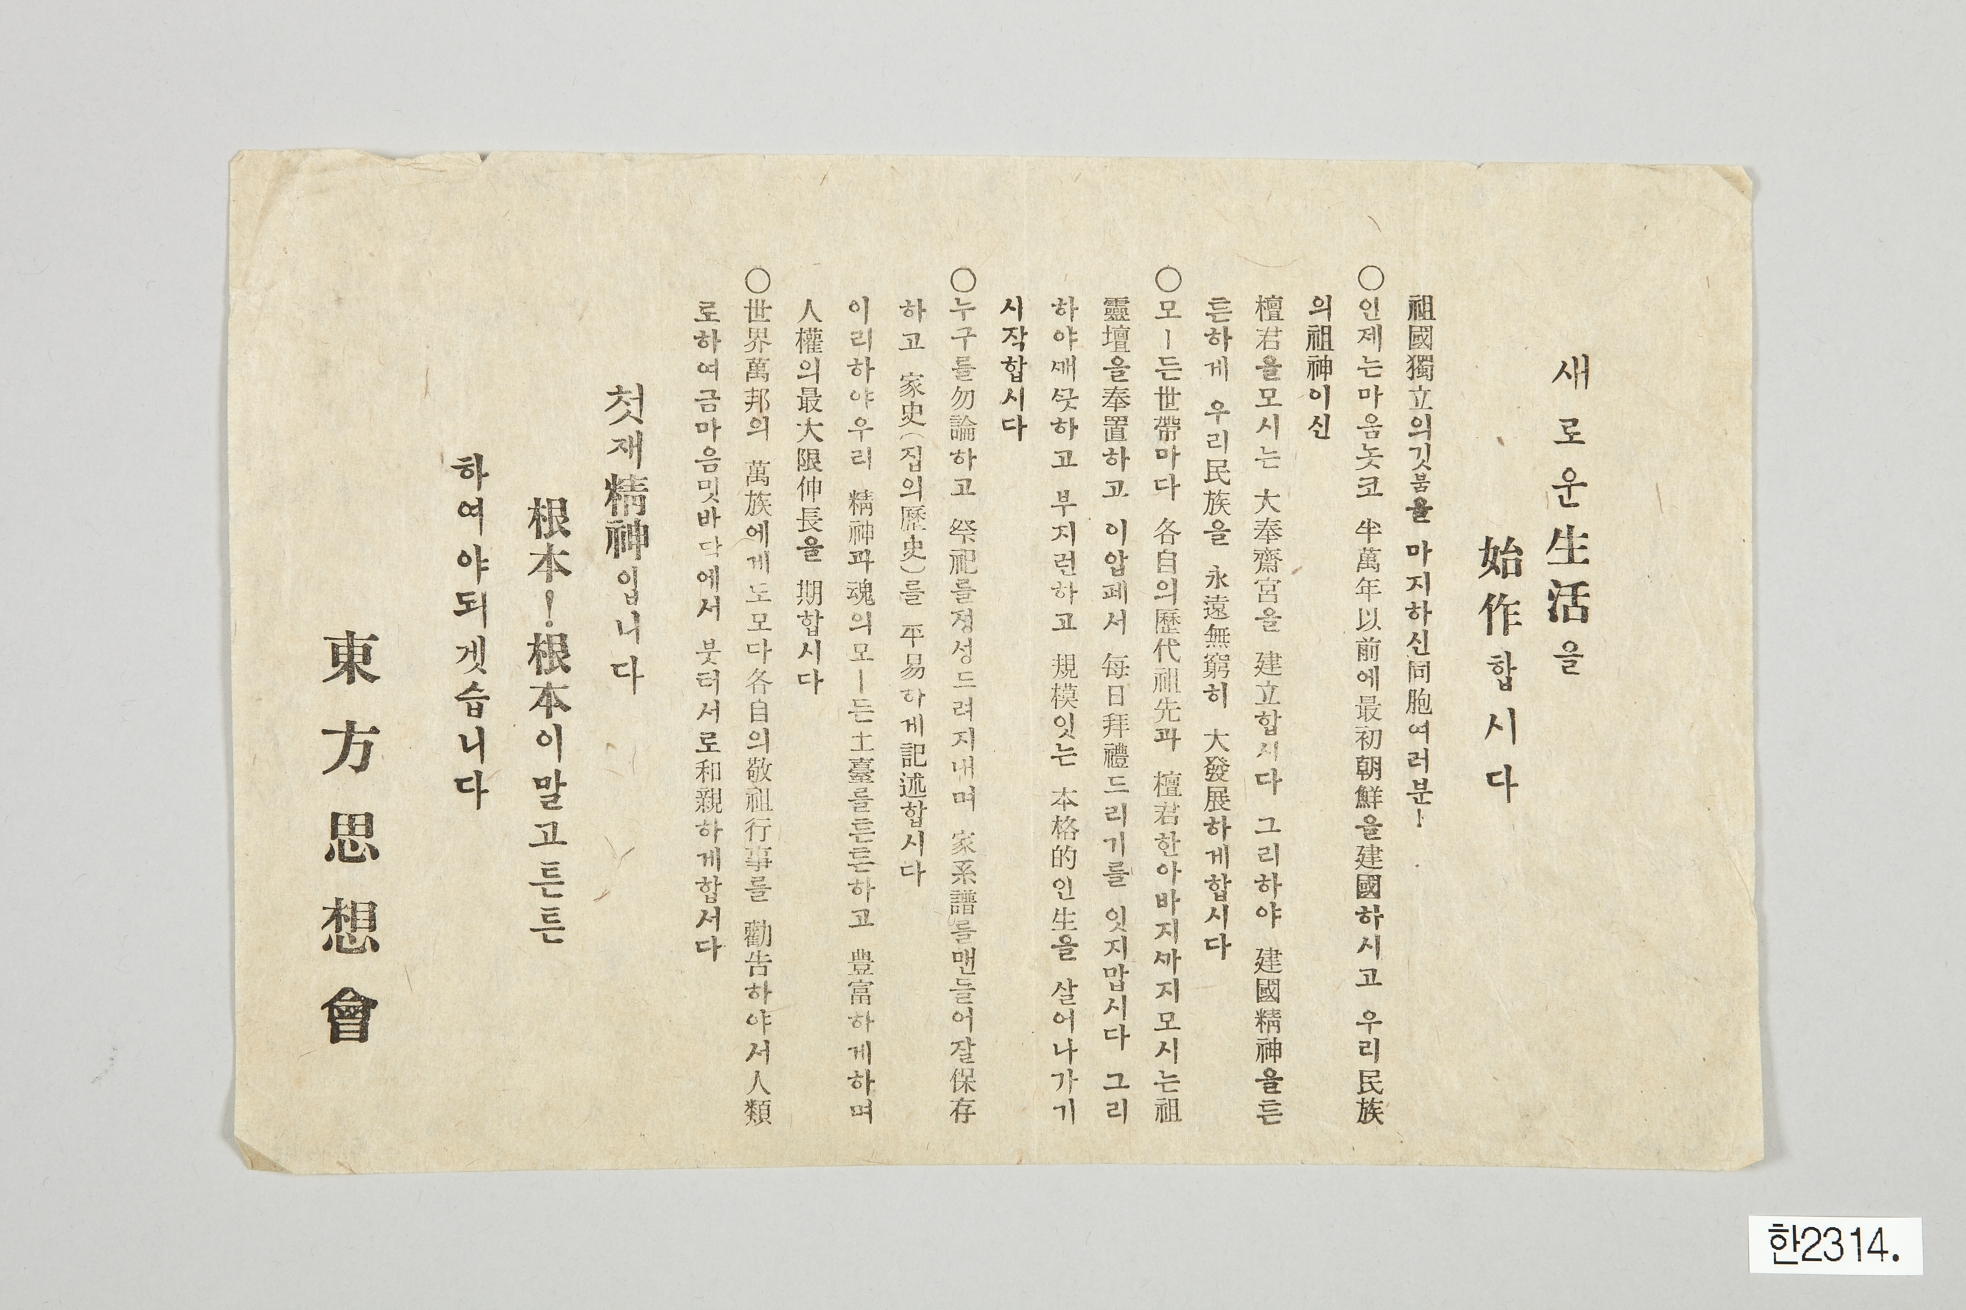 새로운生活을
始作합시다
祖國獨立의깃붐을 마지하신同胞여러분!
○인제는마음놋코 半萬年以前에最初朝鮮을建國하시고 우리民族
의祖神이신
檀君을모시는 大奉齋宮을 建立합시다 그리하야 建國精神을튼
튼하게 우리民族을 永遠無窮히 大發展하게합시다
○모ㅣ든世帶마다 各自의歷代祖先과 檀君한아바지ᄭᅡ지모시는祖
靈壇을奉置하고 이압페서 每日拜禮드리기를 잇지맙시다 그리
하야ᄭᅢᄭᅳᆺ하고 부지런하고 規模잇는 本格的인生을 살어나가기
시작합시다
○누구를勿論하고 祭祀를정성드려지내며 家系譜를맨들어잘保存
하고 家史(집의歷史)를 平易하게記述합시다
이리하야우리 精神과魂의모ㅣ든土臺를튼튼하고 豊富하게하며
人權의最大限伸長을 期합시다
○世界萬邦의 萬族에게도모다各自의敬祖行事를 勸告하야서人類
로하여금마음밋바닥에서 붓터서로和親하게합서다
첫재精神입니다
根本!根本이말고튼튼
하여야되겟습니다
東方思想會
한2314.